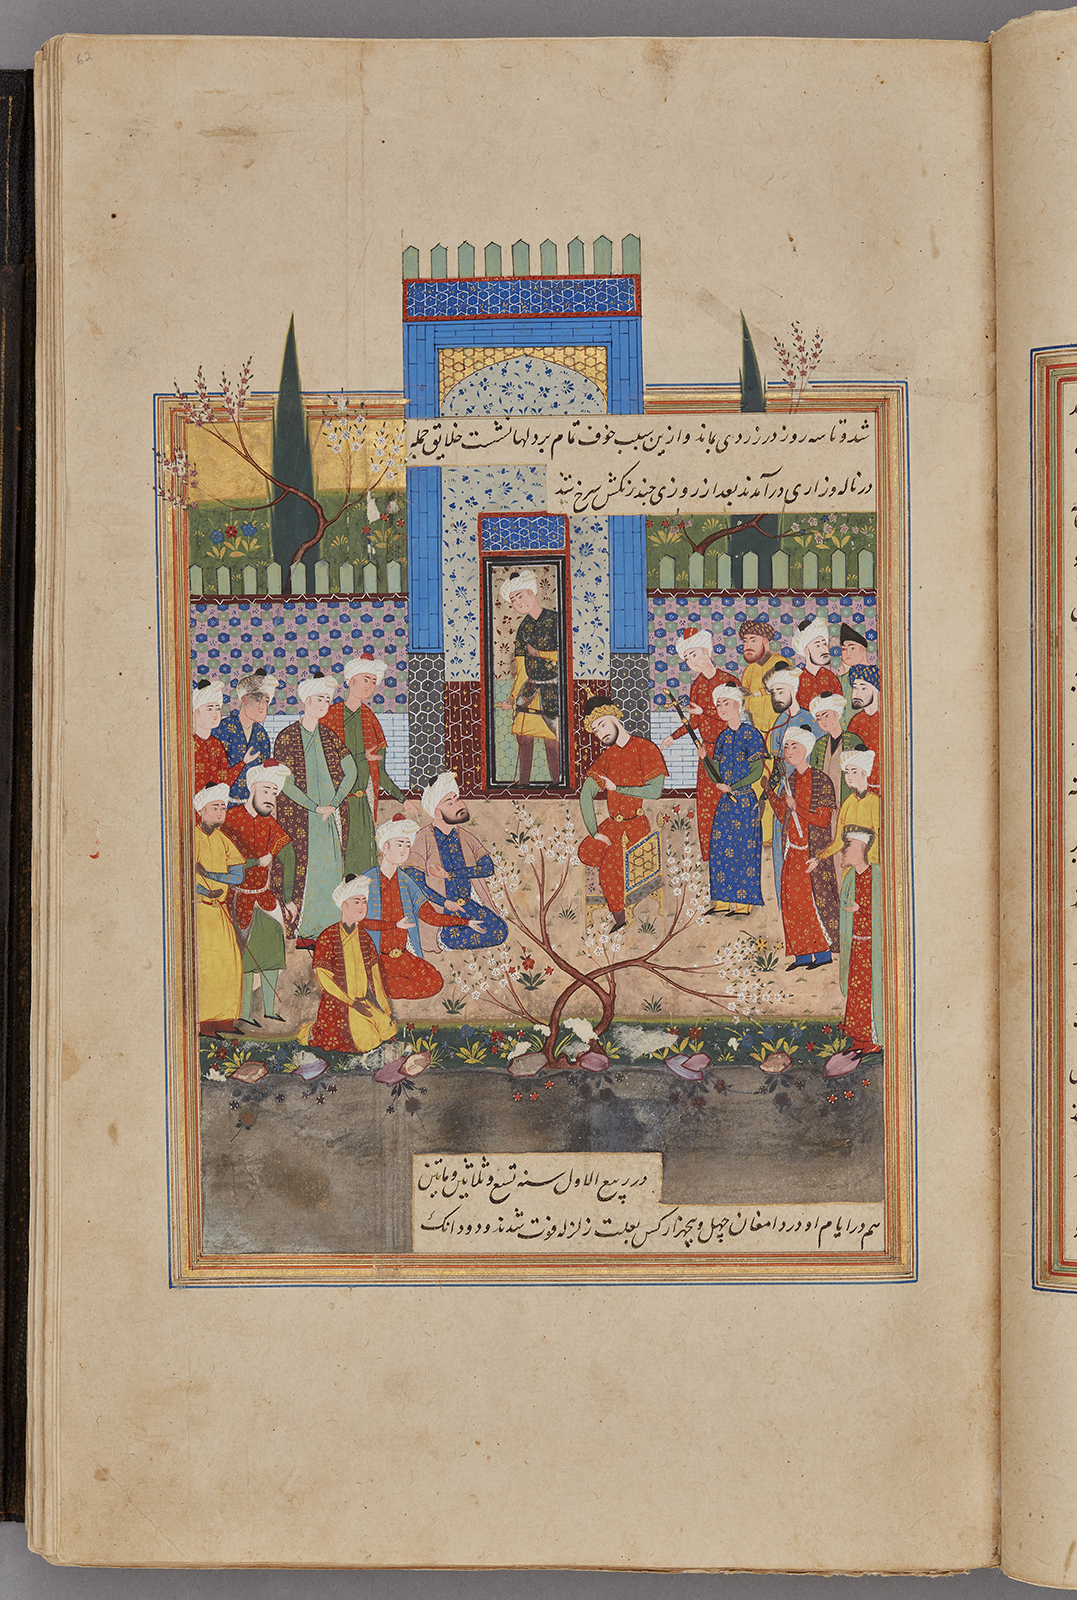 62
شد و تا سه روز در زردی بماند و ازین سبب خوف تمام بر دلها نشست خلایق جمله
در ناله و زاری درآمدند بعد از روزی چند رنگش سرخ شد
در ربیع الاول سنه تسع و ثلاثین و ماتین
هم در ایام او در دامغان چهل و پنجهزار کس بعلت زلزله فوت شدند و دو دانک